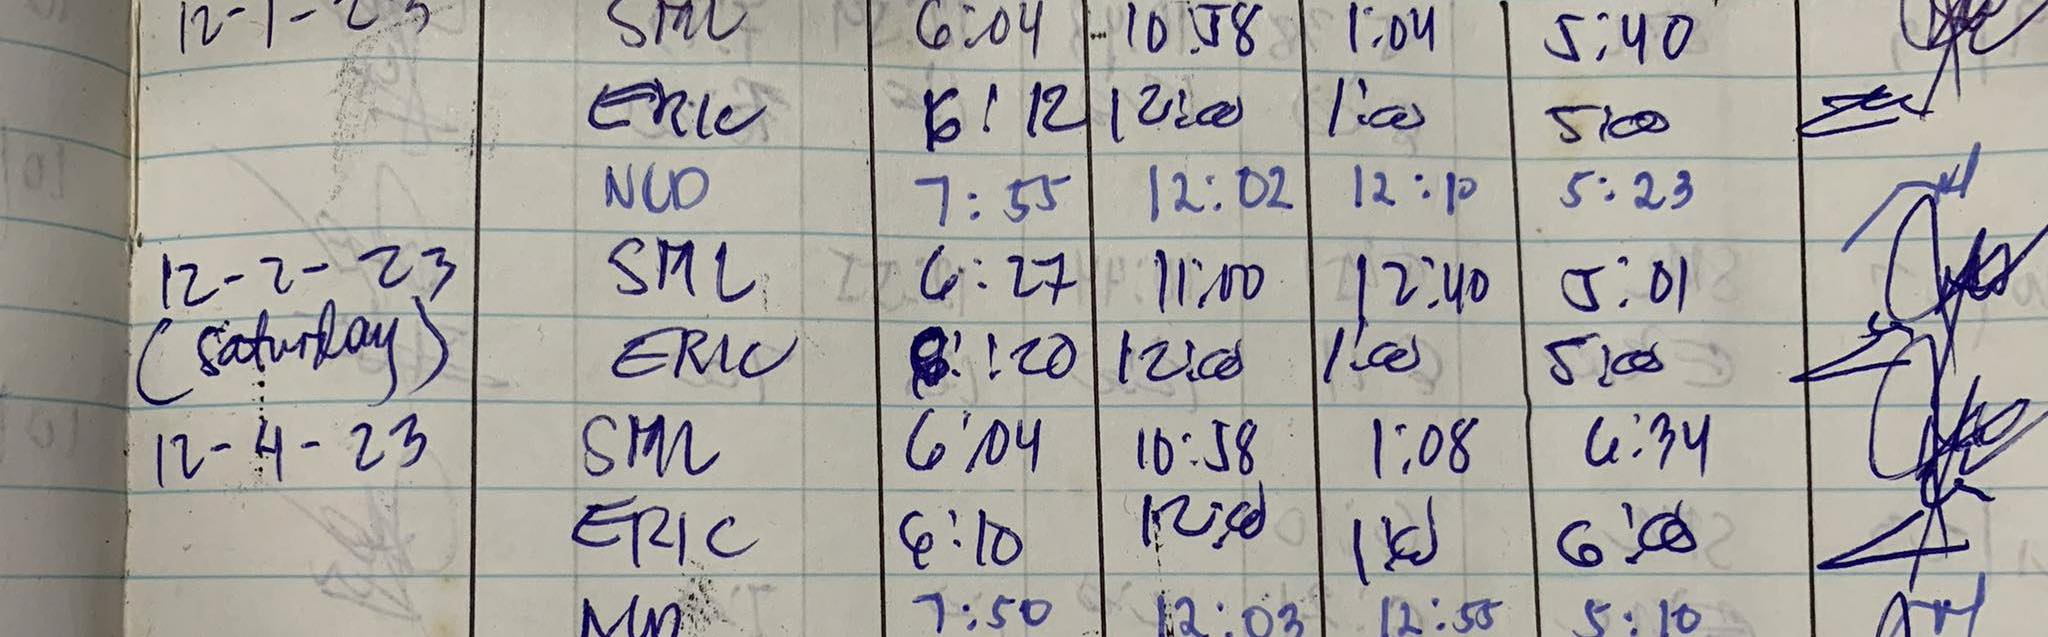 12-1-23 SML 6:04 10:58 1:04 5:40
ERIC 6:12 12:00 1:00 5:00
NUD 7:55 12:02 12:10 5:23
12-2-23 SML 6:27 11:00 12:40 5:01
(Saturday) ERIC :20 12:00 1:00 5:00
12-4-23 SML 6:04 10:58 1:08 6:34
ERIC 6:10 12:00 1:00 6:00
7:50 12:03 12:55 5:10